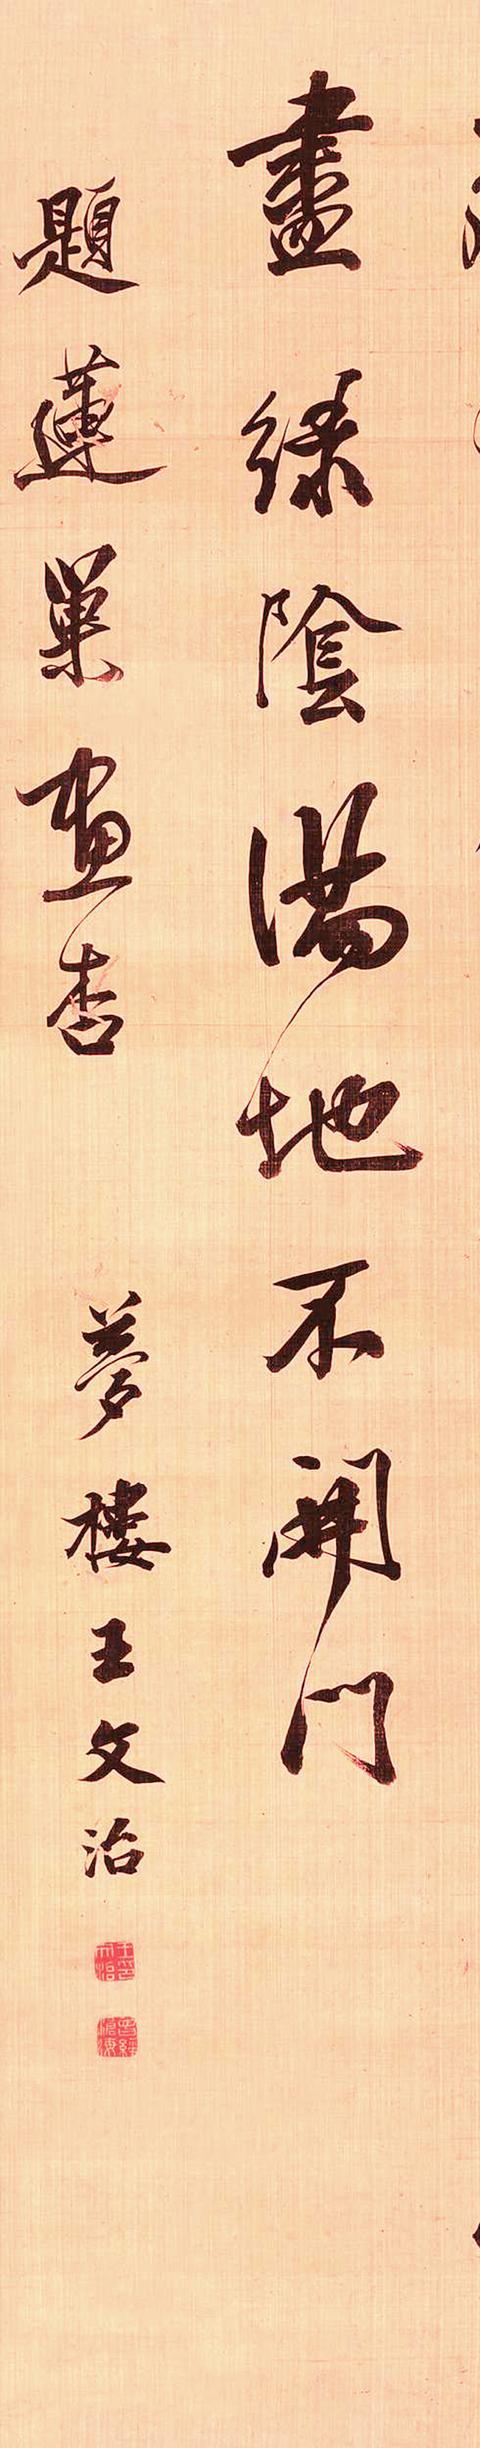 盡綠陰滿地不開門
題蓮巢畫杏
夢樓王文治